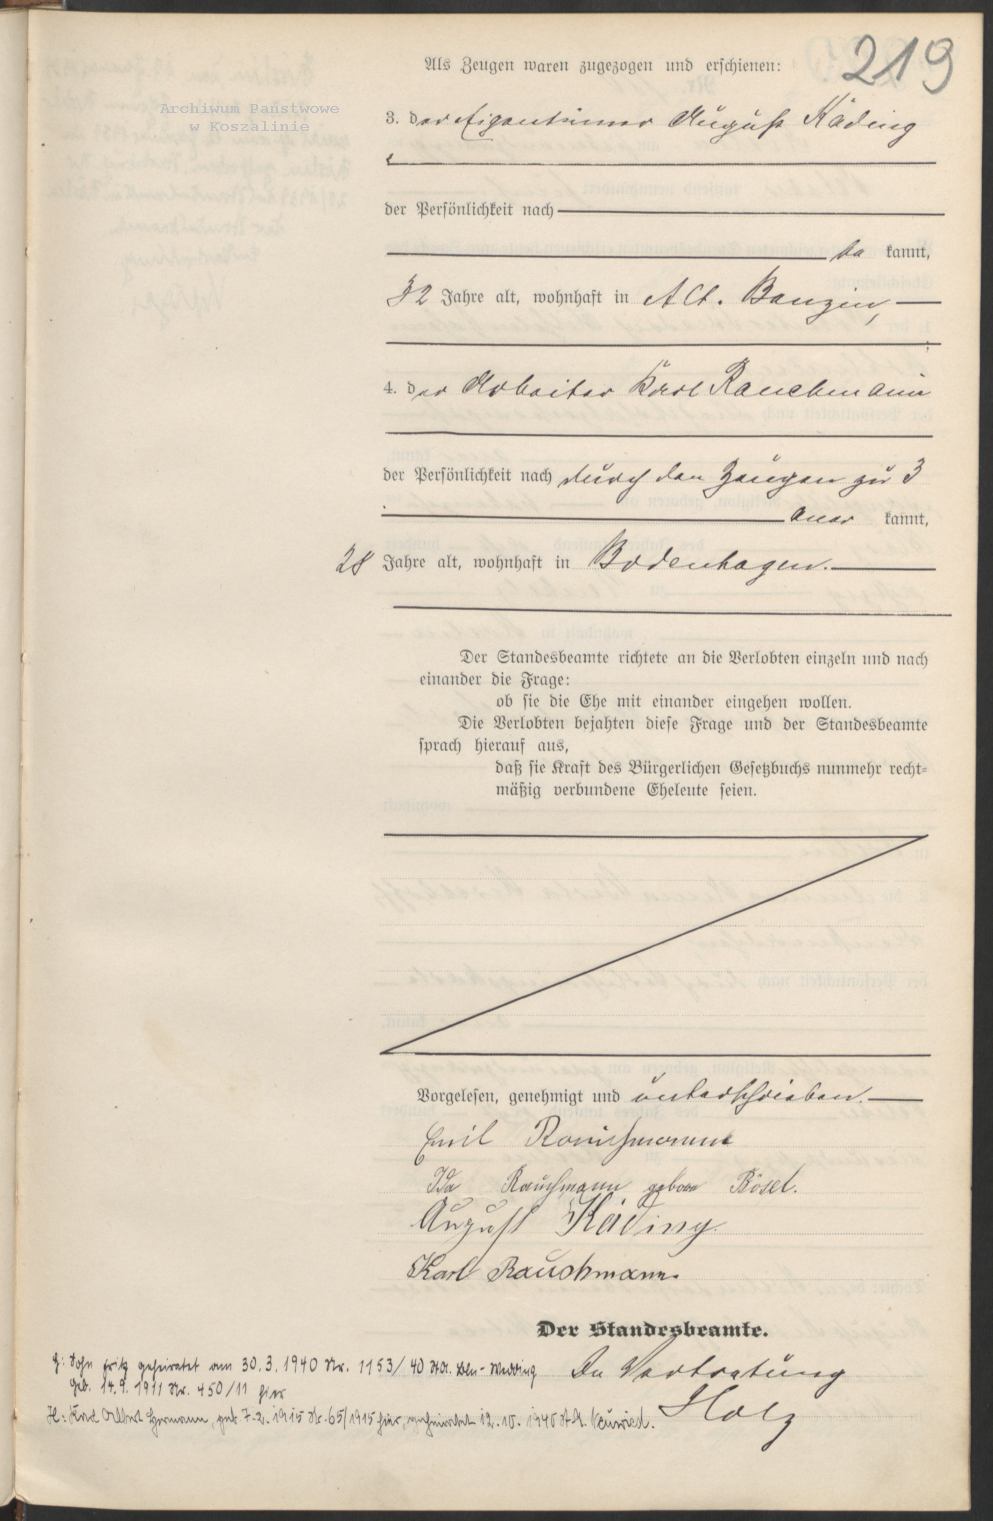 219
Als Zeugen waren zugezogen und erschienen:
Archiwum Państwowe
w Koszalinie
3. der Eigentümer August Käding
der Persönlichkeit nach
be kannt,
32 Jahre alt, wohnhaft in Alt. Banzin,
4. der Arbeiter Karl Rauchmann
der Persönlichkeit nach durch den Zeugen zu 3
aner kannt,
28 Jahre alt, wohnhaft in Bodenhagen.
Der Standesbeamte richtete an die Verlobten einzeln und nach
einander die Frage:
ob sie die Ehe mit einander eingehen wollen.
Die Verlobten bejahten diese Frage und der Standesbeamte
sprach hierauf aus,
daß sie Kraft des Bürgerlichen Gesetzbuchs nunmehr recht-
mäßig verbundene Eheleute seien.
Vorgelesen, genehmigt und unterschrieben.
Emil Rauchmann
Ida Rauchmann geboren Bösel.
August Käding
Karl Rauchmann
Der Standesbeamte.
In Vertretung
Holz
Sohn Fritz geheiratet am 30.3.1940 Nr. 1153/40 Bln-Wedding
geb. 14.9.1911 Nr. 450/11 hier
Karl Albert Hermann, geb. 7.2.1915 Nr. 65/1915 hier, geheiratet 12.10.1940 St.A. Neuwied.